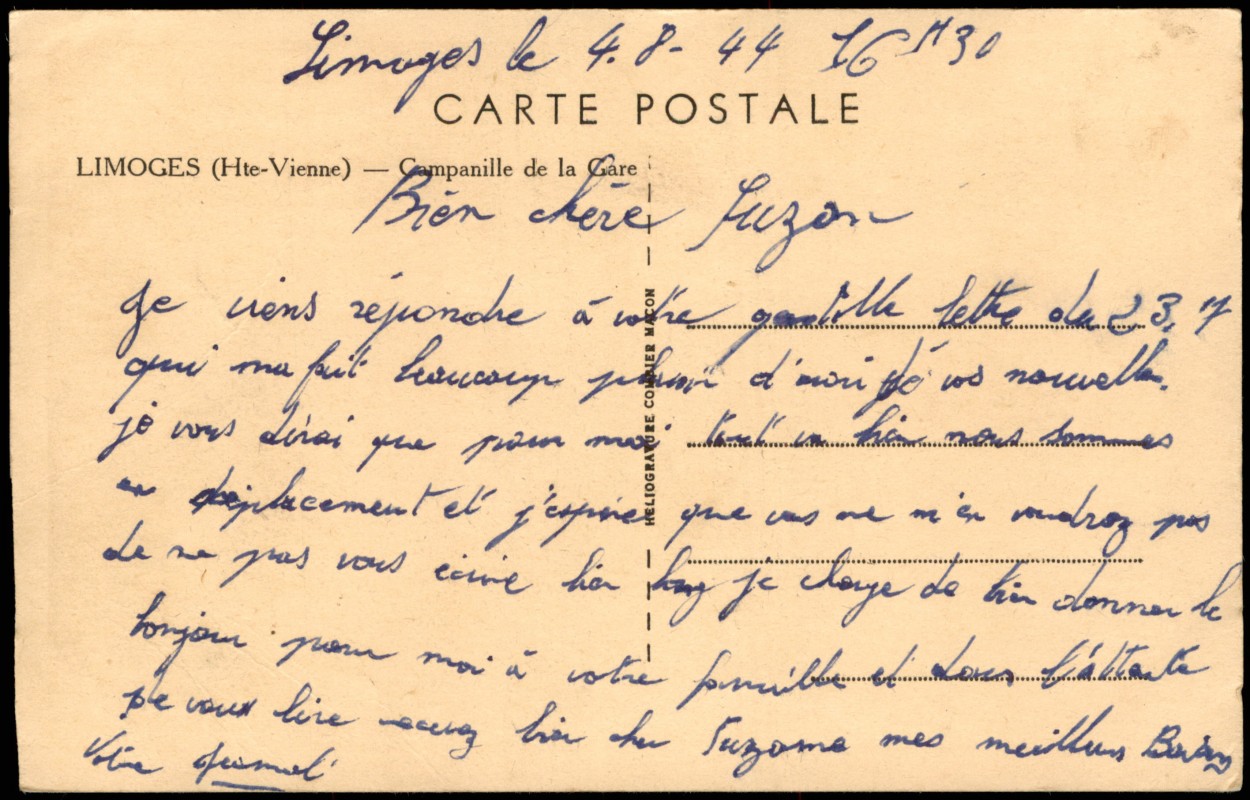 Limoges le 4.8-44 16H30
CARTE POSTALE
LIMOGES (Hte-Vienne) — Campanille de la Gare
Bien chère Suzon
HELIOGRAVURE COMBIER MACON
Je viens répondre à votre gentille lettre du 23.7
qui ma fait beaucoup plaisir d'avoir dé vos nouvelle.
je vous dirai que pour moi tout va bien nous sommes
en déplacement et j'espère que vous ne m'en voudrez pas
de ne pas vous écrire bien long je charge de bien donner le
bonjour pour moi à votre famille et dans l'attente
de vous lire recevez bien cher Suzanne mes meilleurs Baisers
Votre